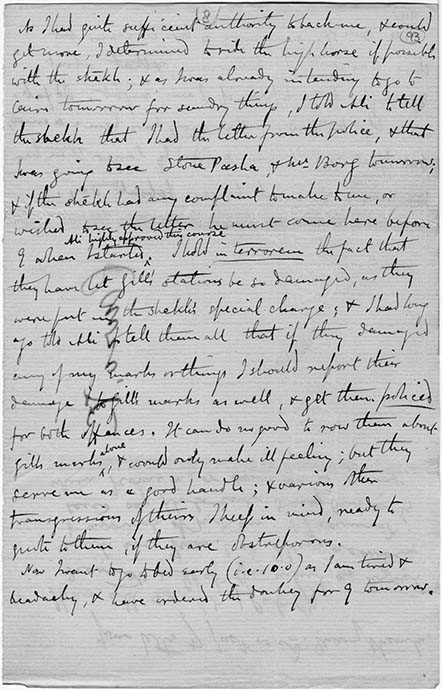 8
93
As I had quite sufficient authority to back me, & could
get more, I determined to ride the high horse if possible
with the shekh; & as I was already intending to go to
Cairo tomorrow for sundry things, I told Ali to tell
the shekh that I had the letter from the police, & that
I was going to see Stone Pasha & Mr Borg tomorrow;
& if the shekh had any complaint to make to me, or
wished to see the letter he must come here before
9 when I started. Ali highly approved this course
I hold in terrorem the fact that
they have let Gill's stations be so damaged, as they
were put in the shekh's special charge; & I had long
ago told Ali to tell them all that if they damaged
any of my marks or things I should report their
damage to Gill's marks as well, & get them policed
for both offences. It can do no good to row them about
Gill's marks alone, & would only make ill feeling; but they
serve me as a good handle; & various other
transgressions of theirs I keep in mind, ready to
quote to them, if they are obstreperous.
Now I want to go to bed early (i.e. 10.0) as I am tired &
headachy, & have ordered the donkey for 9 tomorrow.